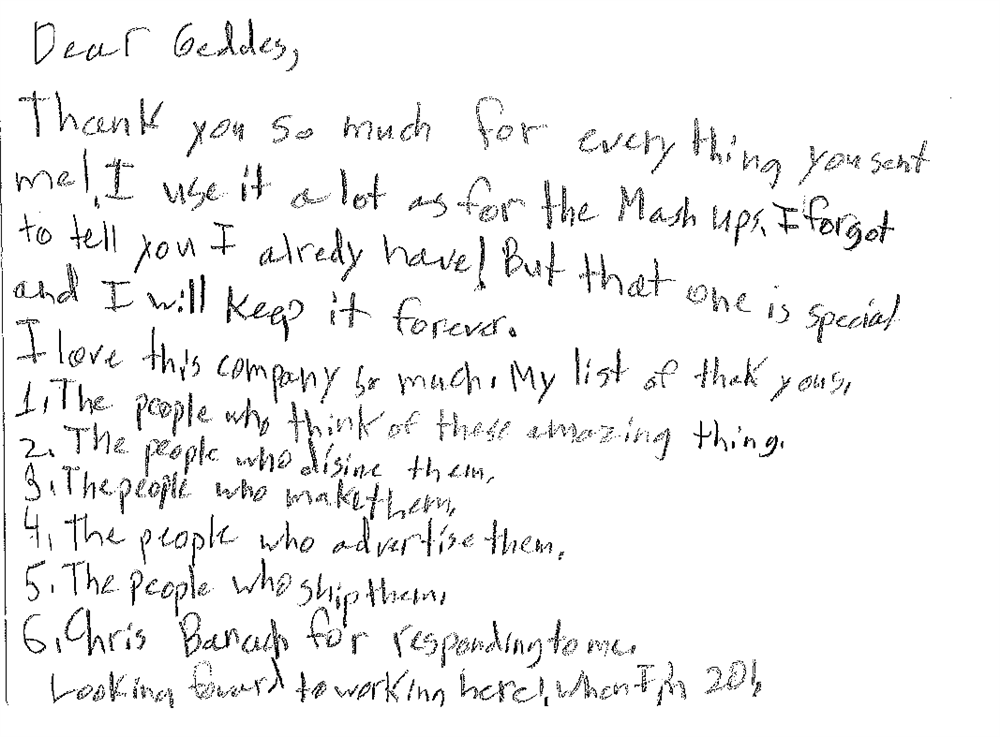 Dear Geddes,
Thank you so much for every thing you sent
me! I use it a lot as for the Mash ups. I forgot
to tell you I alredy have! But that one is special
and I will keep it forever.
I love this company so much. My list of thak yous.
1. The people who think of these amazing thing.
2. The people who disine them.
3. The people who make them.
4. The people who advertise them.
5. The people who ship them.
6. Chris Banach for responding to me.
Looking foward to working here! When I'm 20!